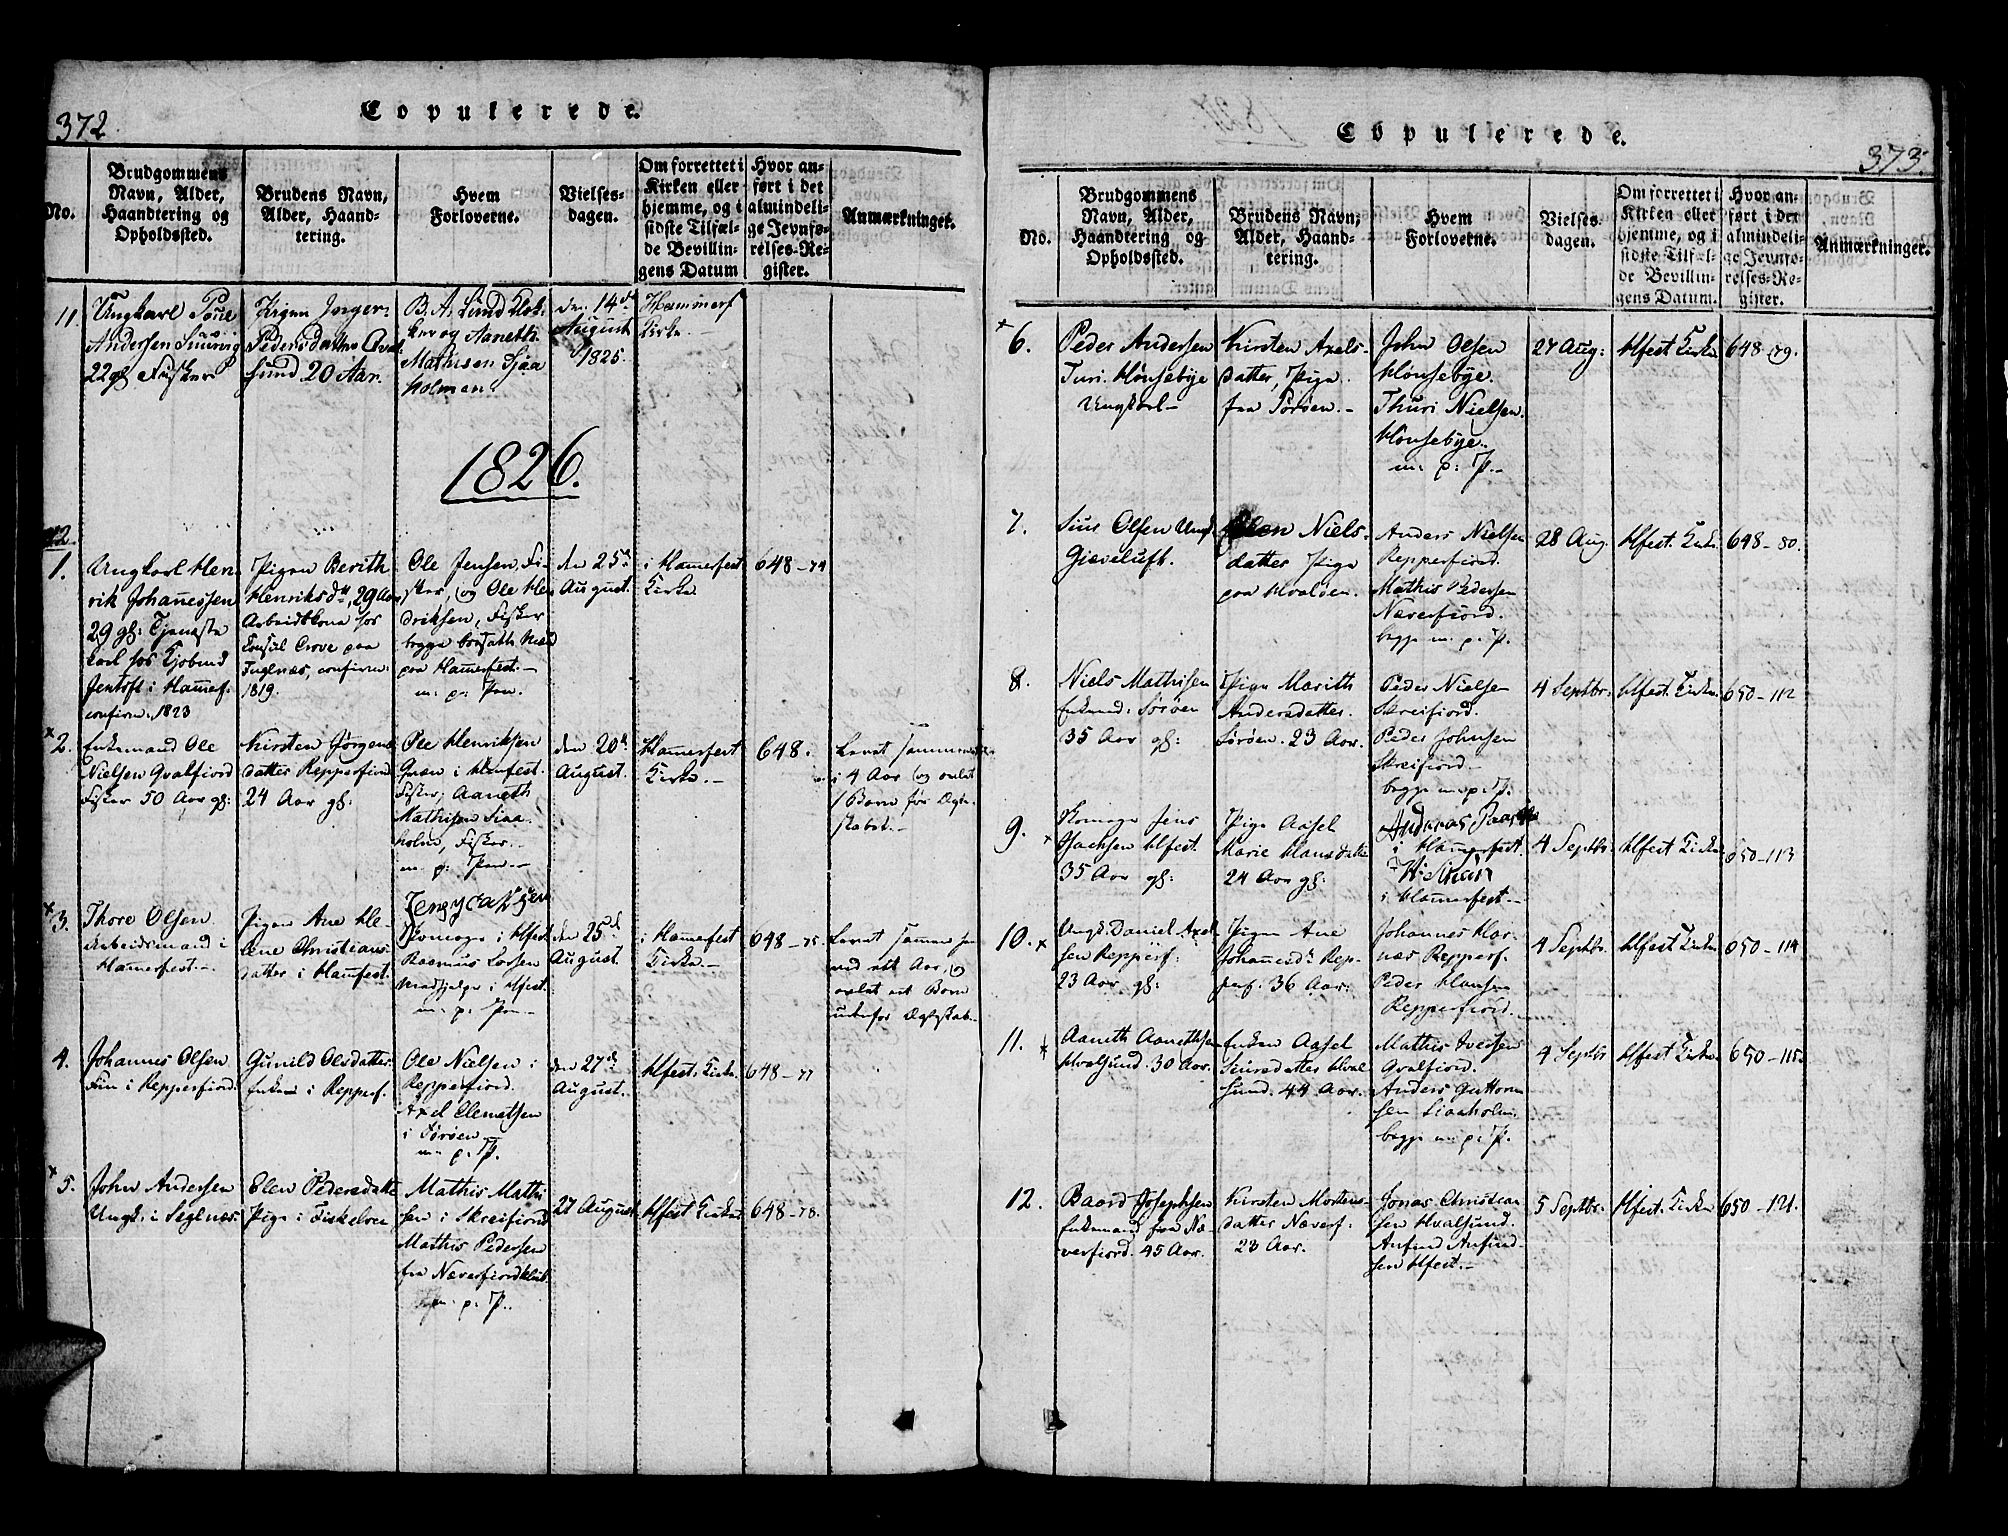 372.
Copulerede.
No.
Brudgommens
Navn, Alder,
Haandtering og
Opholdssted.
Brudens Navn,
Alder, Haand-
tering.
Hvem
Forloverne.
Vielses-
dagen.
Om forrettet i
Kirken eller
hjemme, og i
sidste Tilfæl-
de Bevillin-
gens Datum
Hvor an-
ført i det
almindeli-
ge Jevnfø-
relses-Re-
gister.
Anmærkninger.
11.
Ungkarl Poul
Andersen
22 gl Fisker
Pigen Inger
Pedersdatter
sund 20 Aar.
B. A. Lund Klok-
ker og Aaneth
Mathisen Sjaa
holmen.
den 14de
August
1825.
Hammerf
Kirke.
1826.
42.
1.
Ungkarl Hen-
rik Johannessen
29 gl: Tjeneste
karl hos Kjøbmd
Jentoft i Hamef.
confirm. 1823
Pigen Berith
Henriksdtr, 29 Aar
Arbeidskone hos
Consul Crove paa
Fuglnæs, confirm:
1819.
Ole Jensen Fi-
sker, og Ole Hen
driksen, Fisker
begge bosatte
paa Hamerfest.
m. p: Pen.
den 25de
August.
i Hamerfest
Kirke.
648-74
x 2.
Enkemand Ole
Nielsen Qvalfiord
Fisker 50 Aar gl:
Kirsten Jørgens
datter Repperfiord
24 Aar gl:
Ole Henriksen
Qvæn i Hamfest.
Fisker, Aaneth
Mathisen Siaa
holm, Fisker.
m. p: Pen.
den 20de
August.
Hamerfest
Kirke.
648.
Levet sammen
i 4 Aar og avlet
1 Barn før Ægte-
skabet.
x 3.
Thore Olsen
Arbeidsmand i
Hamerfest.
Pigen Ane He-
lene Christians-
datter i Hamfest.
Skomager i Hfest
Rasmus Larsen
Madhjelpe i Hfest.
m. p: Pen
den 25de
August.
i Hamerfest
Kirke.
648-75
Levet sammen
med ett Aar, og
avlet ett Barn
udenfor Ægteskab.
4.
Johannes Olsen
Fin i Repperfiord.
Gunild Olsdatter
Enken i Repperf.
Ole Nielsen i
Repperfiord.
Axel Clemetsen
i Sørøen
m. p: P.
den 27de
August.
Hfest. Kirke.
648-77
x 5.
John Andersen
Ungk. i Seglnæs.
Elen Pedersdatter
Pige i
Mathis Mathi
sen i Skreifiord
Mathis Pedersen
fra Næverfiord
m. p: P.
27 August
Hfest Kirke
648-78.
373.
Copulerede.
No.
Brudgommens
Navn, Alder,
Haandtering og
Opholdssted.
Brudens Navn,
Alder, Haand-
tering.
Hvem
Forloverne.
Vielses-
dagen.
Om forrettet i
Kirken eller
hjemme, og i
sidste Tilfæl-
de Bevillin-
gens Datum.
Hvor an-
ført i det
almindeli-
ge Jevnfø-
relses-Re-
gister.
Anmærkninger.
x 6.
Peder Andersen
Turi. Hønsebye
Ungkarl-
Kirsten Axels-
datter, Pige
fra Sørøen.-
John Olsen
Hønsebye.
Thuri Nielsen.
Hønsebye.
m. p: P.-
27 Aug:
Hfest Kirke
648-79.
7.
Siur Olsen Ungk.
Gieveluft.
Elen Niels-
datter Pige
paa Hvalöen.
Anders Nielsen
Repperfiord.
Mathis Pedersen
Næverfiord.
begge m. p: P.
28 Aug.
Hfest. Kirke
648-80.
8.
Niels Mathisen
Enkemd: Sørøen
35 Aar gl:
Pige Marith
Andersdatter.
Sørøen. 23 Aar.
Peder Nielsen
Skreifiord.
Peder Johnsen
Skreifiord-
begge m. p. P.
4 Septbr.
Hfest. Kirke.
650-112
9. x
Skomager Jens
Isachsen Hfest.
35 Aar gl:
Pige Aasel
Marie Hansdatter
24 Aar gl:
Andreas
i Hamerfest.
i Hamerfest-
4 Septbr.
Hfest Kirke
650-113
10. x
Ungk. Daniel Axel
sen Repperf:
23 Aar gl:
Pigen Ane
Johannesdr. Rep-
perf. 36 Aar.
Johannes Kor-
næs Repperf.
Peder Hansen
Repperfiord.
4 Septbr.
Hfest Kirke
650-114
11. x
Aaneth Aanethsen
Hvalsund. 30 Aar.
Enken Aasel
Siursdatter Hval
sund. 44 Aar.
Mathis Iversen
Qvalfiord.
Anders Guttorm
sen Siaaholm.
begge m. p. P.
4 Septbr
Hfest Kirke
650-115
12.
Baard Josephsen
Enkemand fra Næ
verfiord. 45 Aar.
Kirsten Mortens
datter Næverf:
23 Aar.
Jonas Christian
sen Hvalsund.
Anfind Anfind-
sen Hfest.-
5 Septbr.
Hfest. Kirke
650-121.